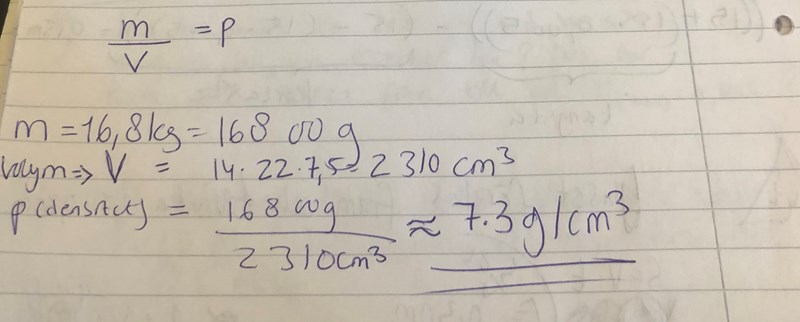 m/V = p
m = 16,8 kg = 168 00 g
Volym => V = 14 · 22 · 7,5 = 2 310 cm³
p (densitet) = 168 00g / 2 310 cm³ ≈ 7.3 g/cm³